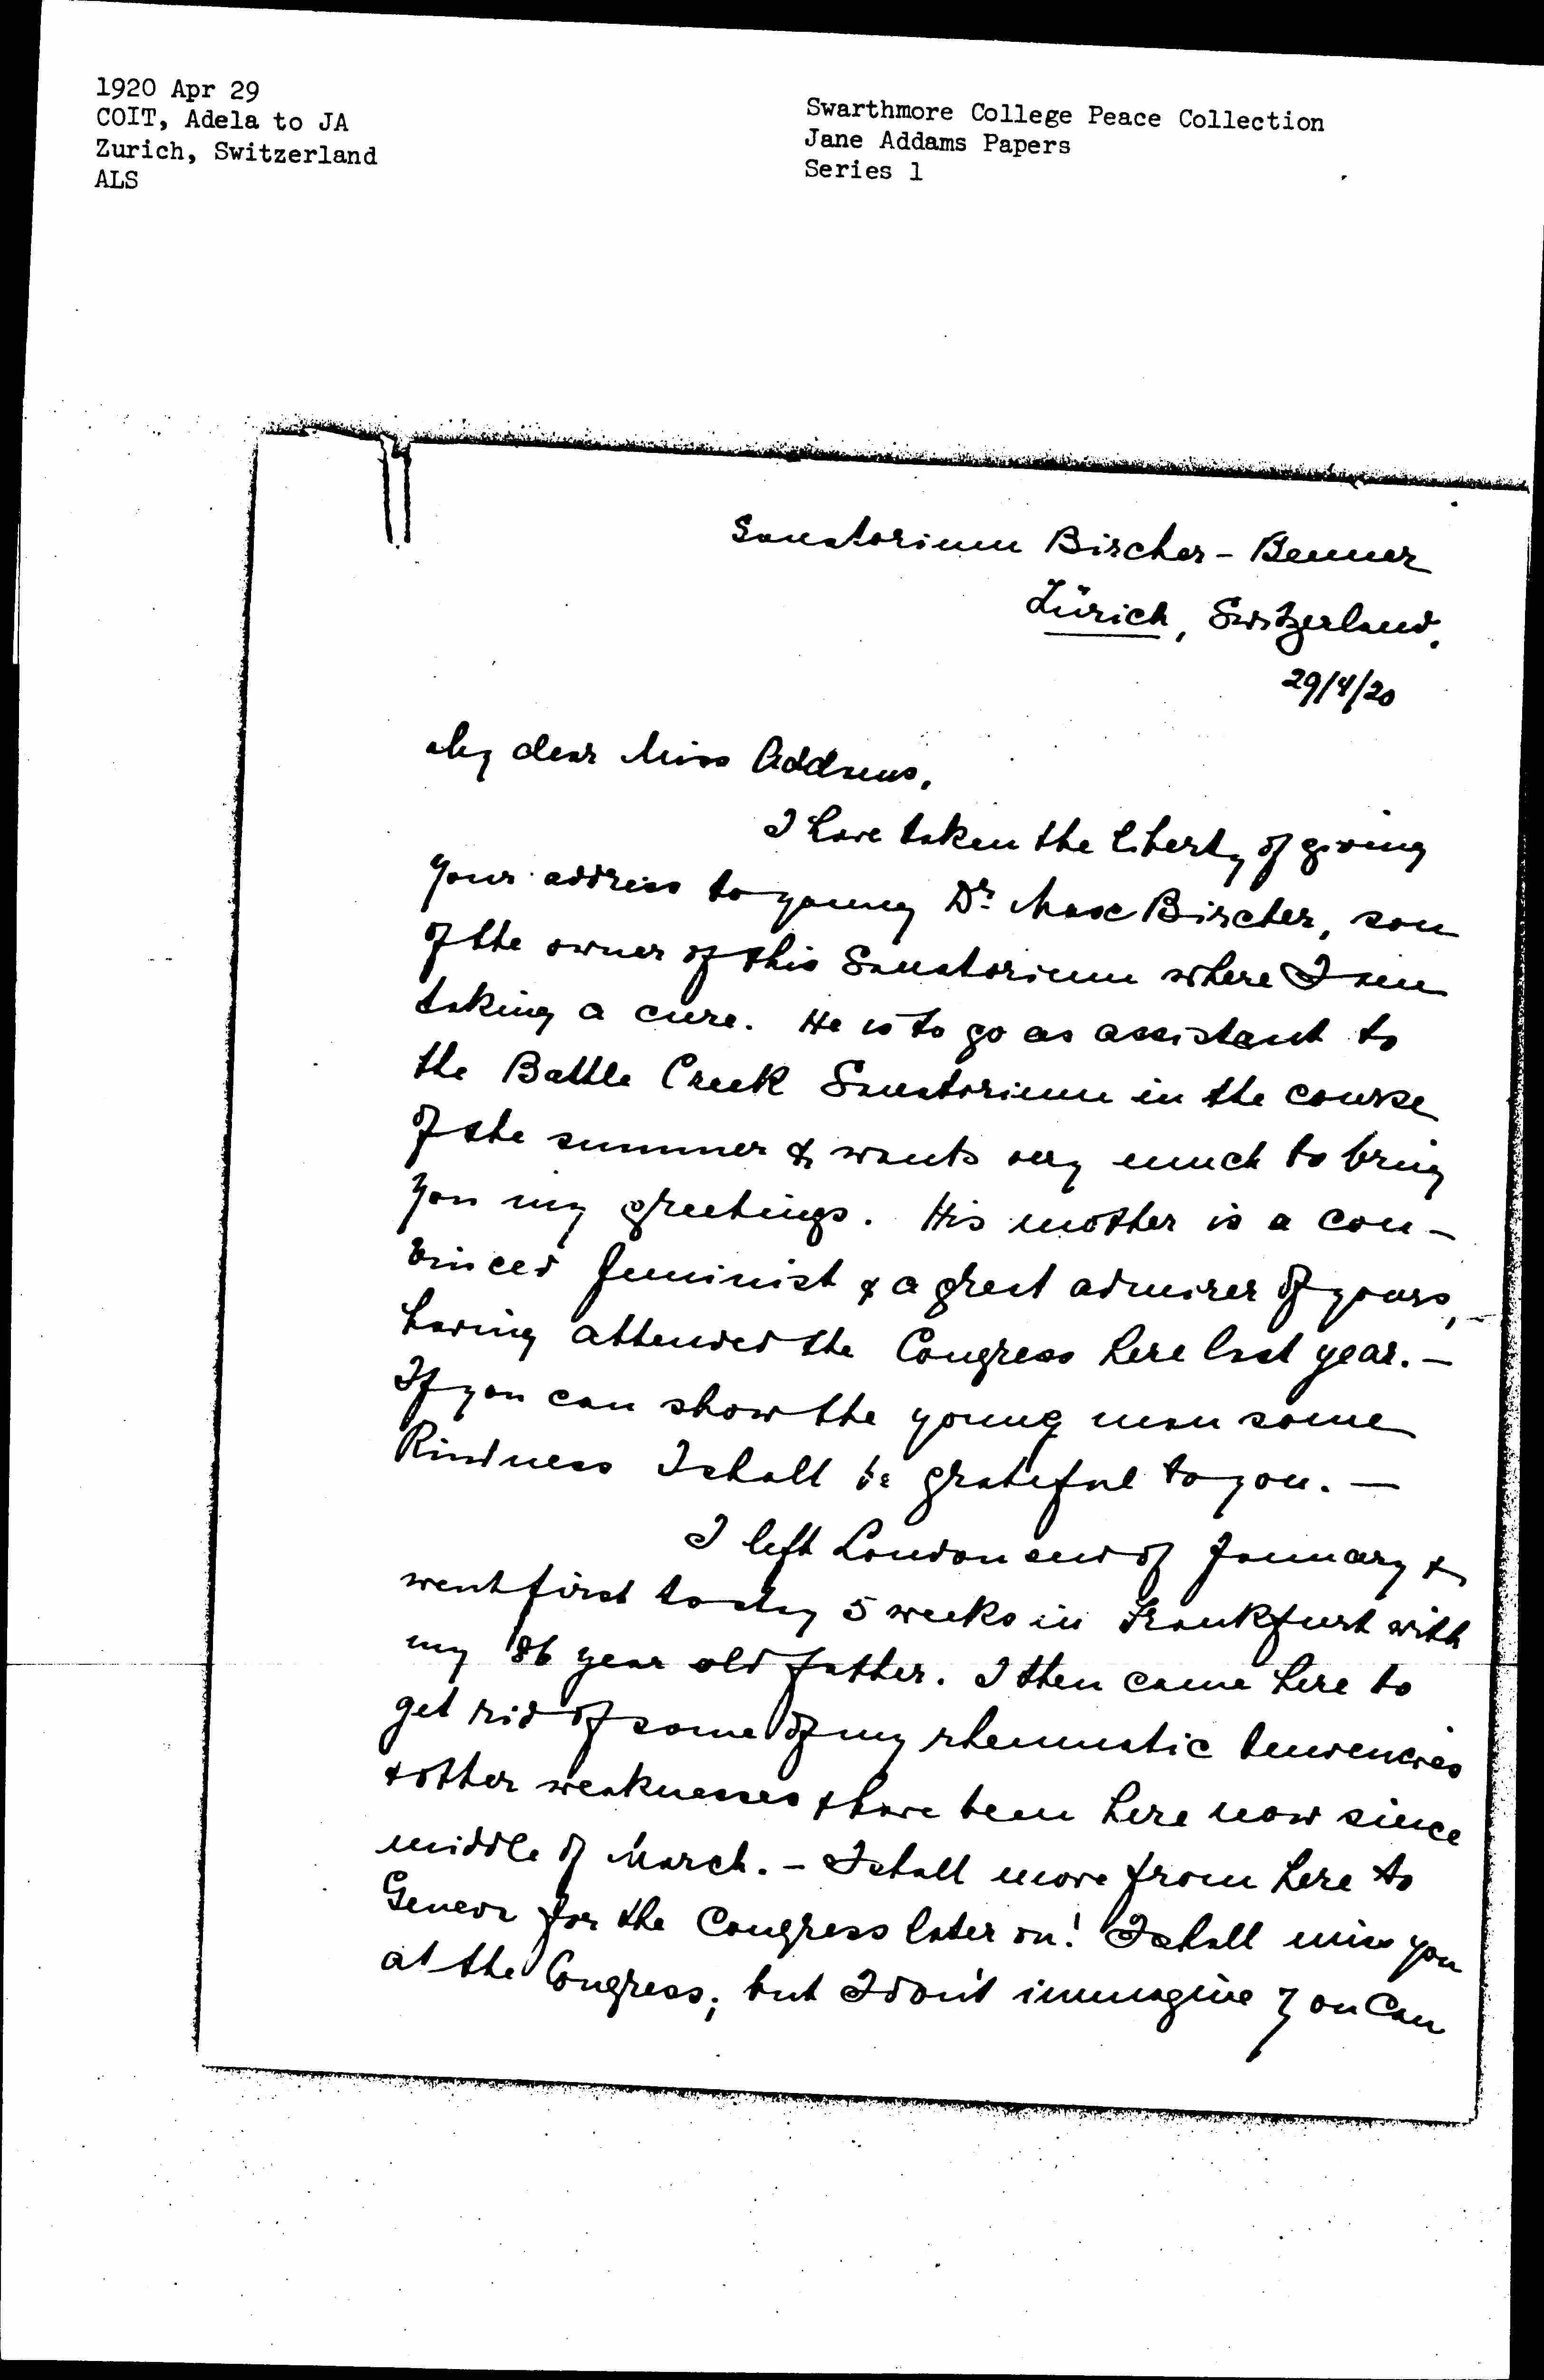 1920 Apr 29
COIT, Adela to JA
Zurich, Switzerland
ALS
Swarthmore College Peace Collection
Jane Addams Papers
Series 1
Sanatorium Bircher-Benner
Zürich, Switzerland.
29/4/20
My dear Miss Addams,
I have taken the liberty of giving
your address to young Dr. Max Bircher, son
of the owner of this Sanatorium where I am
taking a cure. He is to go as assistant to
the Battle Creek Sanatorium in the course
of the summer & wants very much to bring
you my greetings. His mother is a con-
vinced feminist & a great admirer of yours,
having attended the Congress here last year. —
If you can show the young man some
kindness I shall be grateful to you. —
I left London end of January &
went first to stay 5 weeks in Frankfurt with
my 86 year old father. I then came here to
get rid of some of my rheumatic tendencies
& other weaknesses & have been here now since
middle of March. – I shall move from here to
Geneva for the Congress later on! I shall miss you
at the Congress; but I don't immagine you can